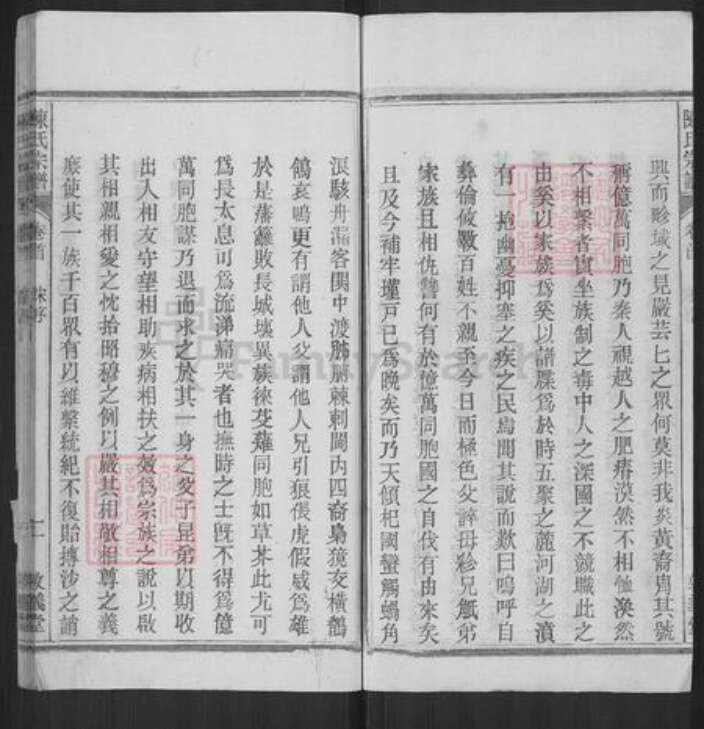 興而畛域之見嚴芸匕之眾何莫非我炎黃裔冑其號
稱億萬同胞乃秦人視越人之肥瘠漠然不相恤渙然
不相繫者實坐族制之毒中人之深國之不競職此之
由奚以家族爲奚以譜牒爲於時五聚之麓河湖之濆
有一抱幽憂抑塞之疾之民焉聞其說而歎曰嗚呼自
彝倫攸斁百姓不親至今日而極色父誶母紾兄觝弟
家族且相仇讐何有於億萬同胞國之自伐有由來矣
且及今補牢墐戸已爲晚矣而乃天傾杞國蠻觸蝸角
浪駭舟漏客閧中渡肺腑棘刺閫内四裔梟獍交橫鶺
鴒哀鳴更有謂他人父謂他人兄引狼倀虎假威爲雄
於是藩籬敗長城壞異族徠芟薙同胞如草芥此尤可
爲長太息可爲流涕痛哭者也撫時之士旣不得爲億
萬同胞謀乃退而求之於其一身之父子昆弟以期收
出入相友守望相助疾病相扶之效爲宗族之說以啟
其相親相愛之忱拾昭穆之例以嚴其相敬相尊之義
庶使其一族千百眾有以維繫統紀不復貽摶沙之誚
陳氏宗譜
卷首
敦義堂